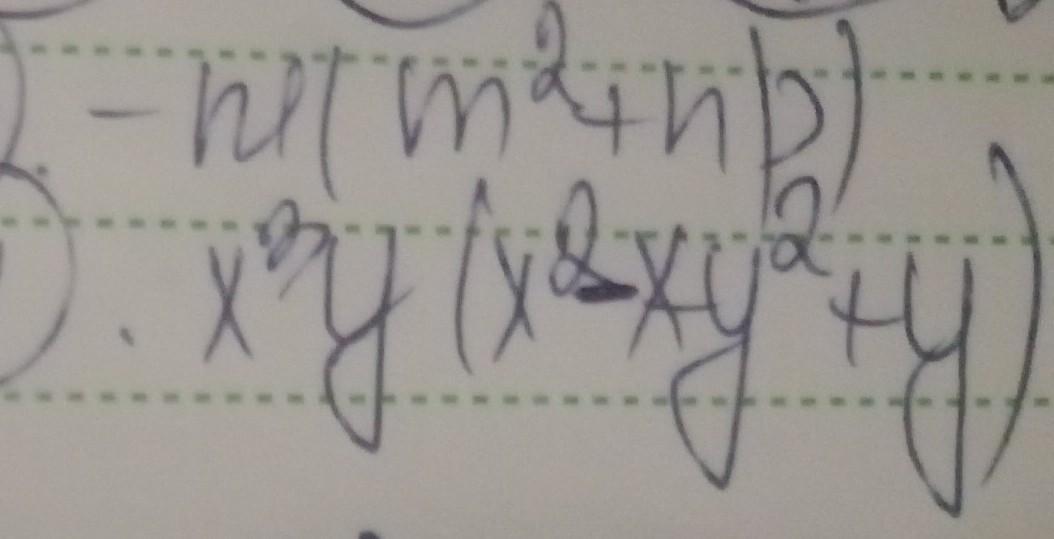 - m(m²+np)
. x³y(x²-xy²+y)